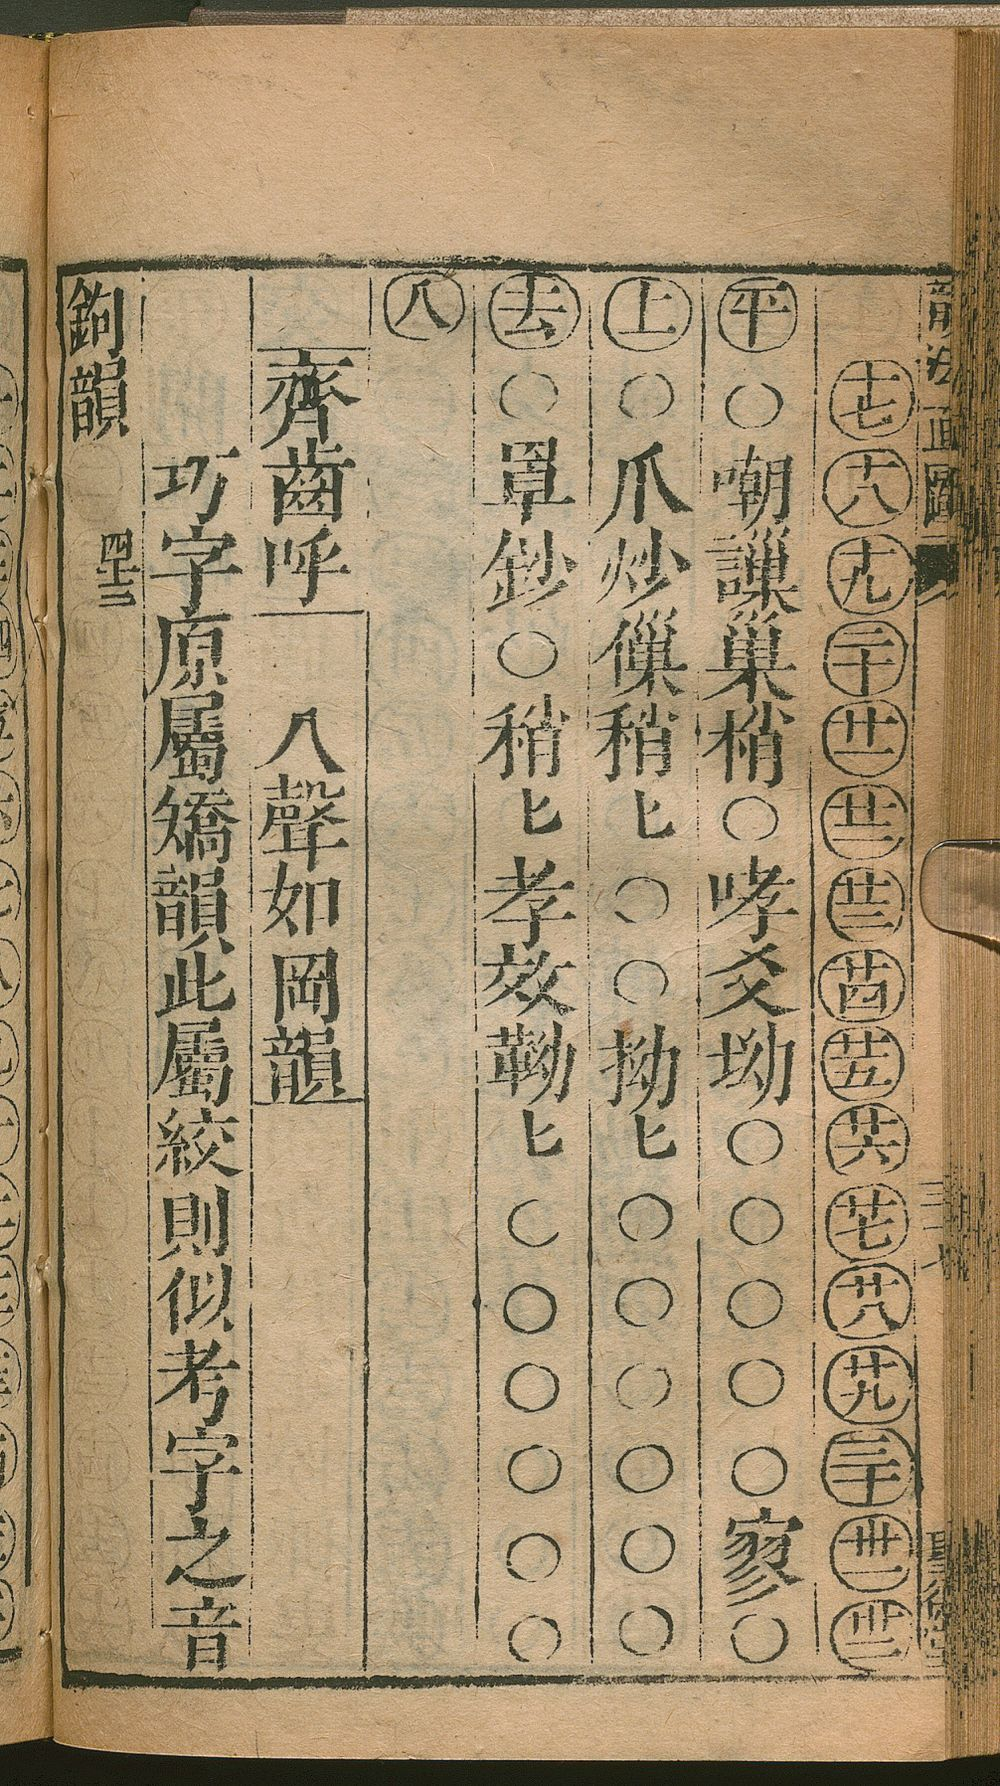 韻法直圖
十七 十八 十九 二十 廿一 廿二 廿三 廿四 廿五 廿六 廿七 廿八 廿九 三十 卅一 卅二
平 ○ 嘲 謿 巢 梢 ○ 哮 爻 坳 ○ ○ ○ ○ ○ 寥 ○
上 ○ 爪 炒 僺 稍 匕 ○ ○ 拗 匕 ○ ○ ○ ○ ○ ○
去 ○ 罩 鈔 ○ 稍 匕 孝 效 靿 匕 ○ ○ ○ ○ ○ ○
入
齊齒呼 入聲如岡韻
巧字原屬矯韻此屬絞則似考字之音
鉤韻 四十三